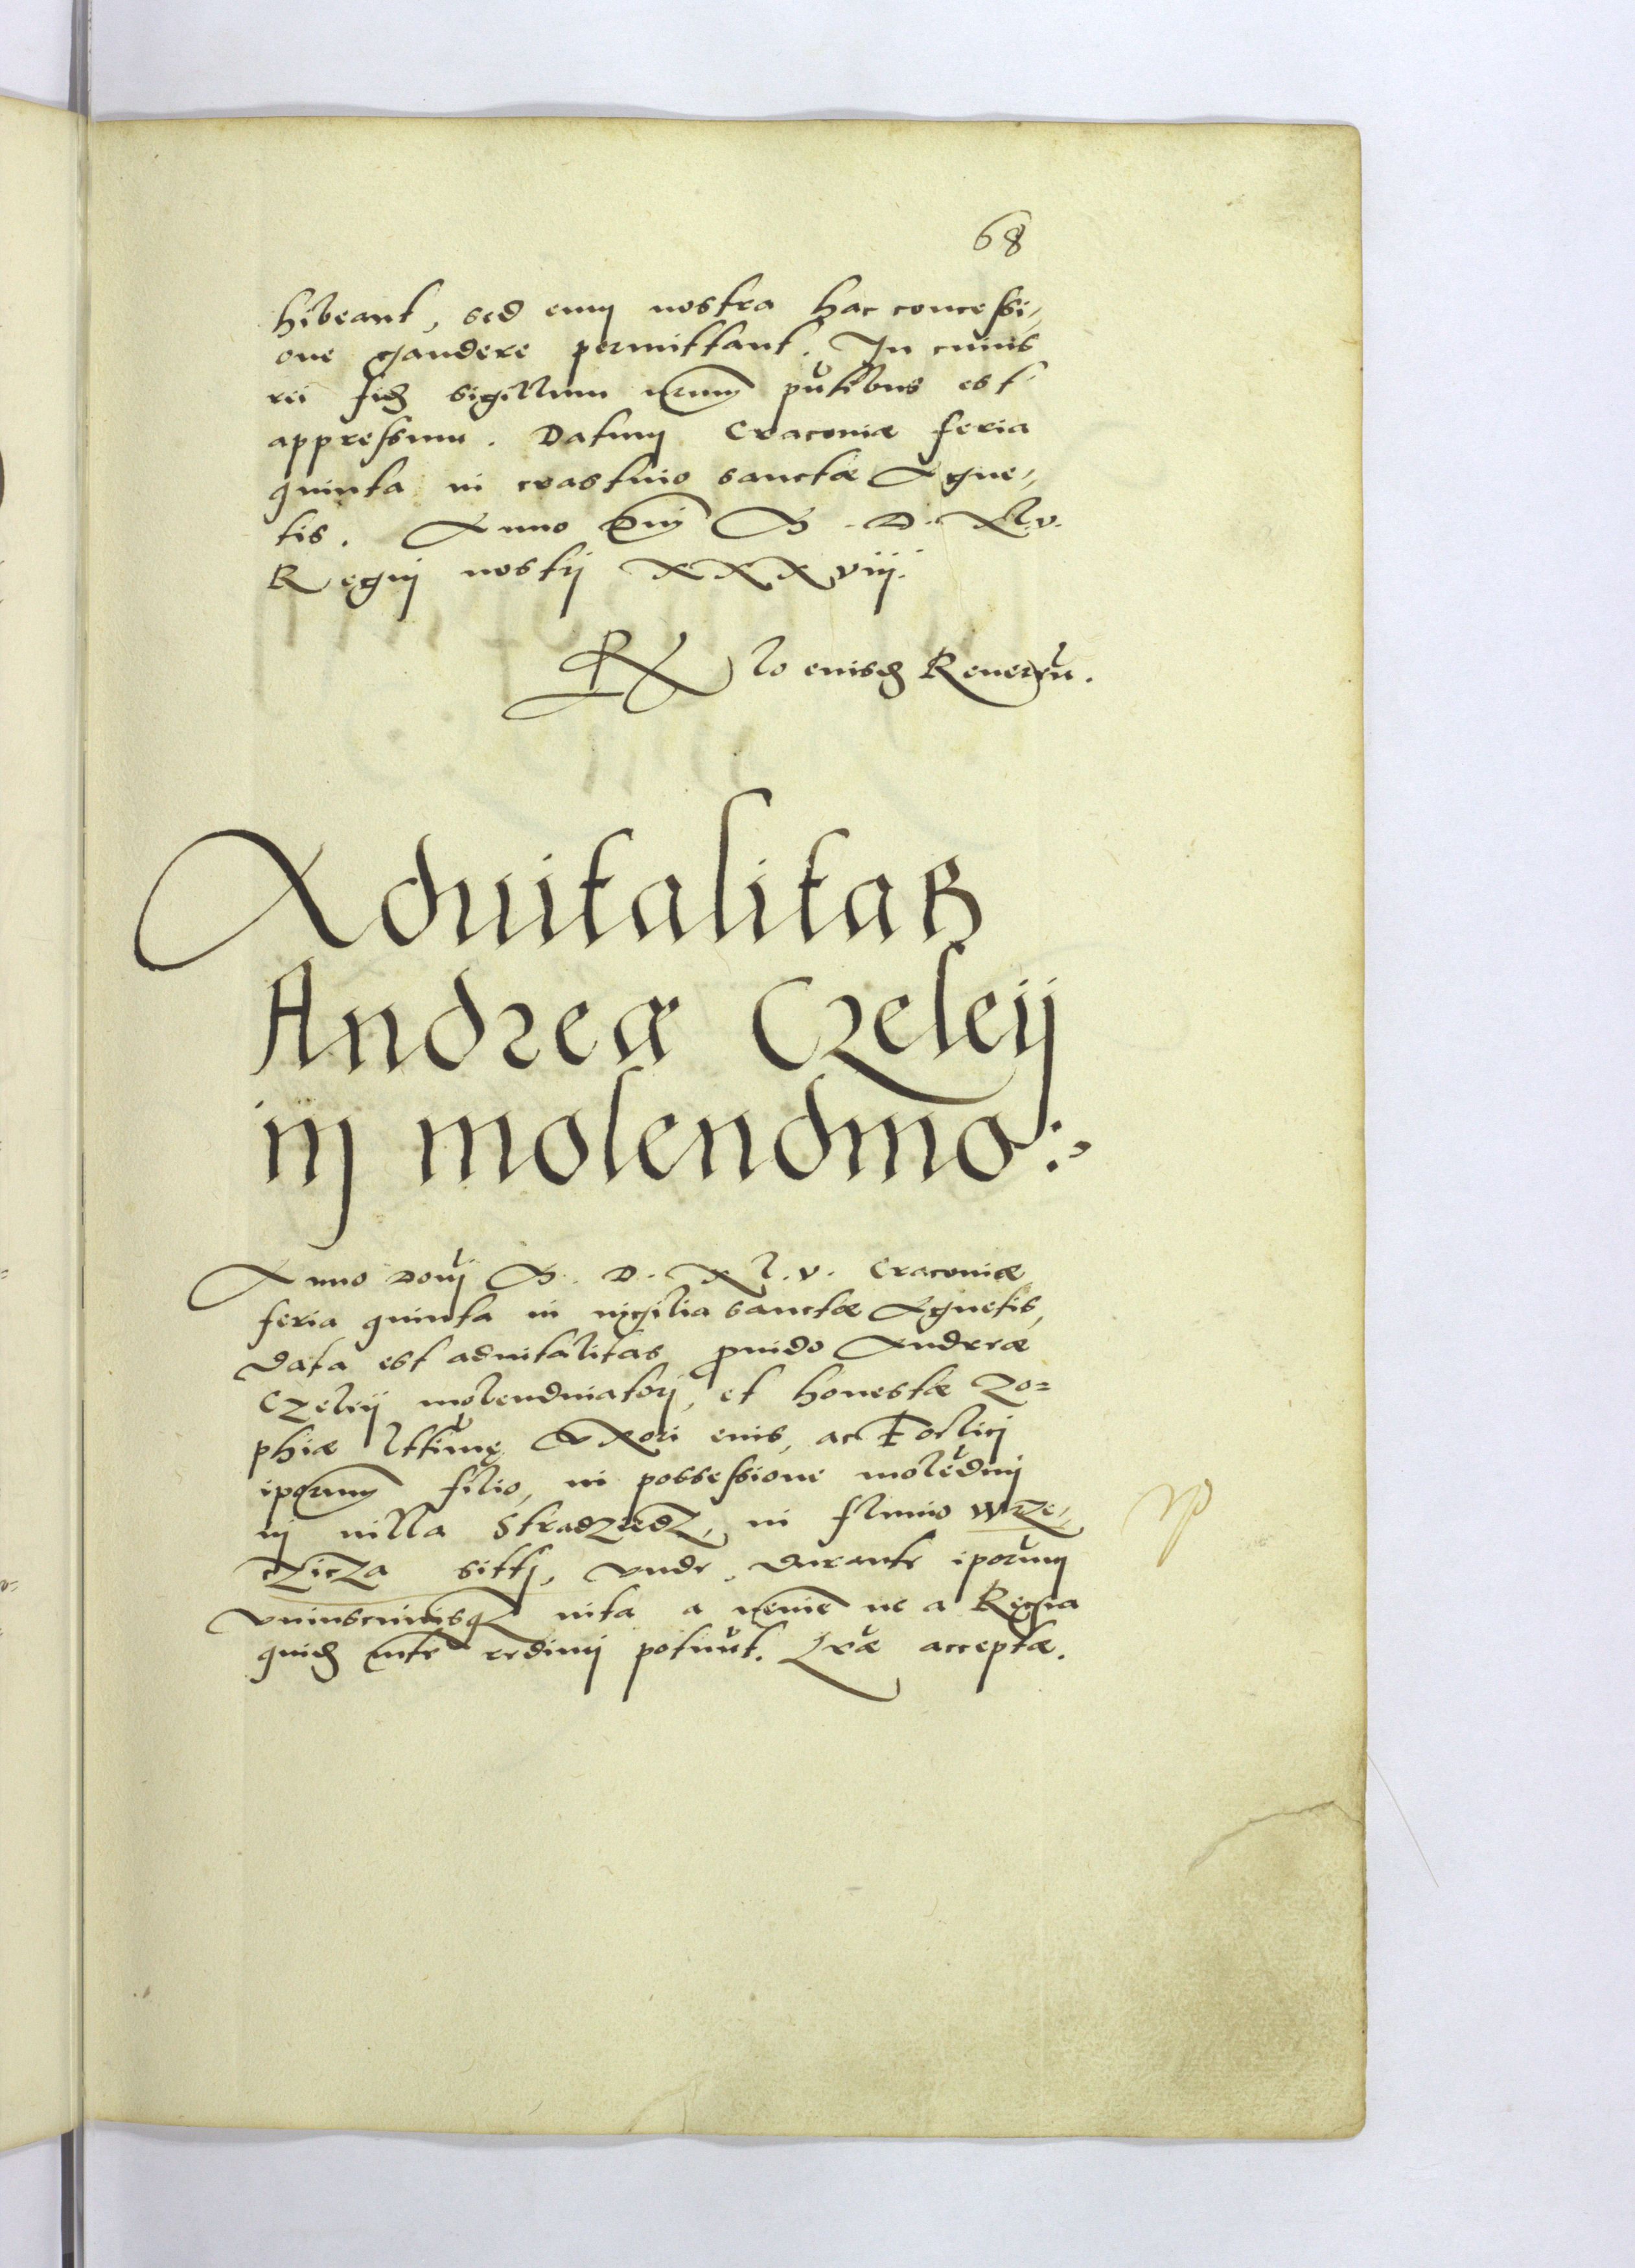 68
hibeant, sed eum nostra hac concessi,
one gaudere permittant. In cuius
rei fidē sigillum nrum pn̄tibus est
appressum. Datum Cracoviæ feria
quinta in crastino sanctæ Agne,
tis. Anno Dni M. D. Xl.v.
Regni nostri XXXviij.
Rx ejusdē Reveren̄.
Advitalitas
Andreæ Czeleij
in molendino:
Anno Domj M. D. Xl.v. Cracoviæ
feria quinta in vigilia sanctæ Agnetis,
Data est advitalitas provido Andreæ
Czeleij molendinatori, et honestæ Zo=
phiæ Uxori eius, ac
iporum filio, in possessione molēdini
in villa Stradzredz, in fluvio Wrze,
czicza sitti, unde, durante iporum
uniuscuiusq vita a ne a Regia
quidē mte redimi poterūt. Lræ acceptæ.